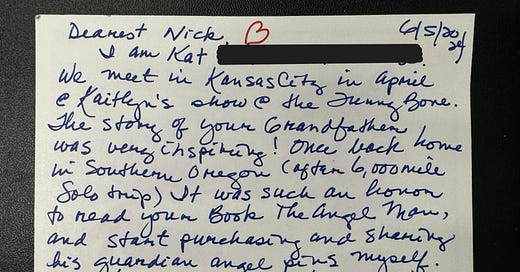 Dearest Nick, 6/5/2024
I am Kat
We meet in Kansas City in April
@ Kaitlyn's show @ the Funny Bone.
The story of your Grandfather
was very inspiring! Once back home
in Southern Oregon (after 6,000 mile
Solo trip) It was such an honor
to read your Book The Angel Man,
and start purchasing and sharing
his guardian angel pins myself.